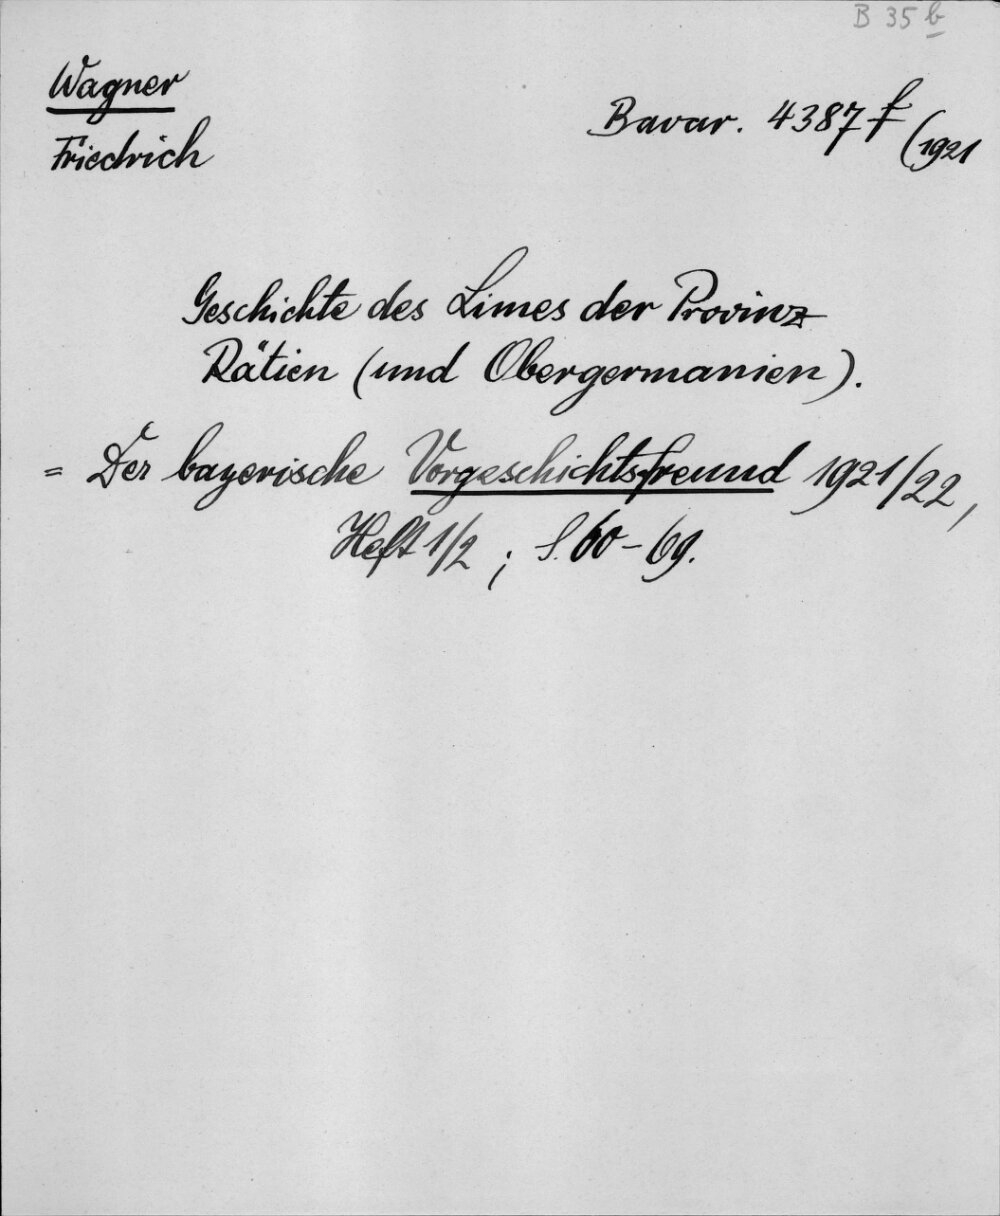 B 35 b
Wagner
Friedrich
Bavar. 4387 f (1921
Geschichte des Limes der Provinz
Rätien (und Obergermanien).
= Der bayerische Vorgeschichtsfreund 1921/22,
Heft 1/2 ; S. 60-69.